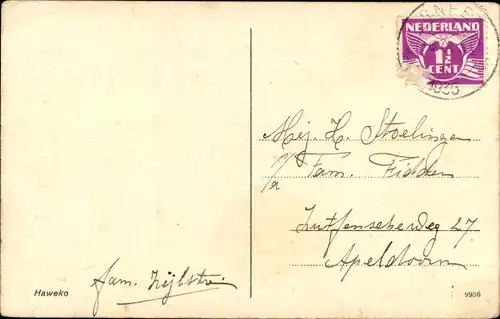 NEDERLAND
1½
CENT
1935
Mej. H. Stoelinga
p/a Fam. Fidder
Zutfenscheweg 27
Apeldoorn
fam. Zijlstra
Haweko
9986